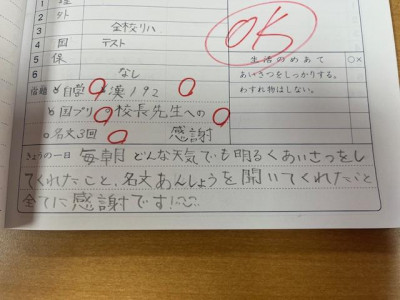 2 外
3 全校リハ
4 国 テスト
5 保
6 なし
宿題 自学 漢192
国プリ 校長先生への
名文3回 感謝
OK
生活のめあて ○×
あいさつをしっかりする。
わすれ物はしない。
きょうの一日 毎朝どんな天気でも明るくあいさつをし
てくれたこと、名文あんしょうを聞いてくれたこと
全てに感謝です!